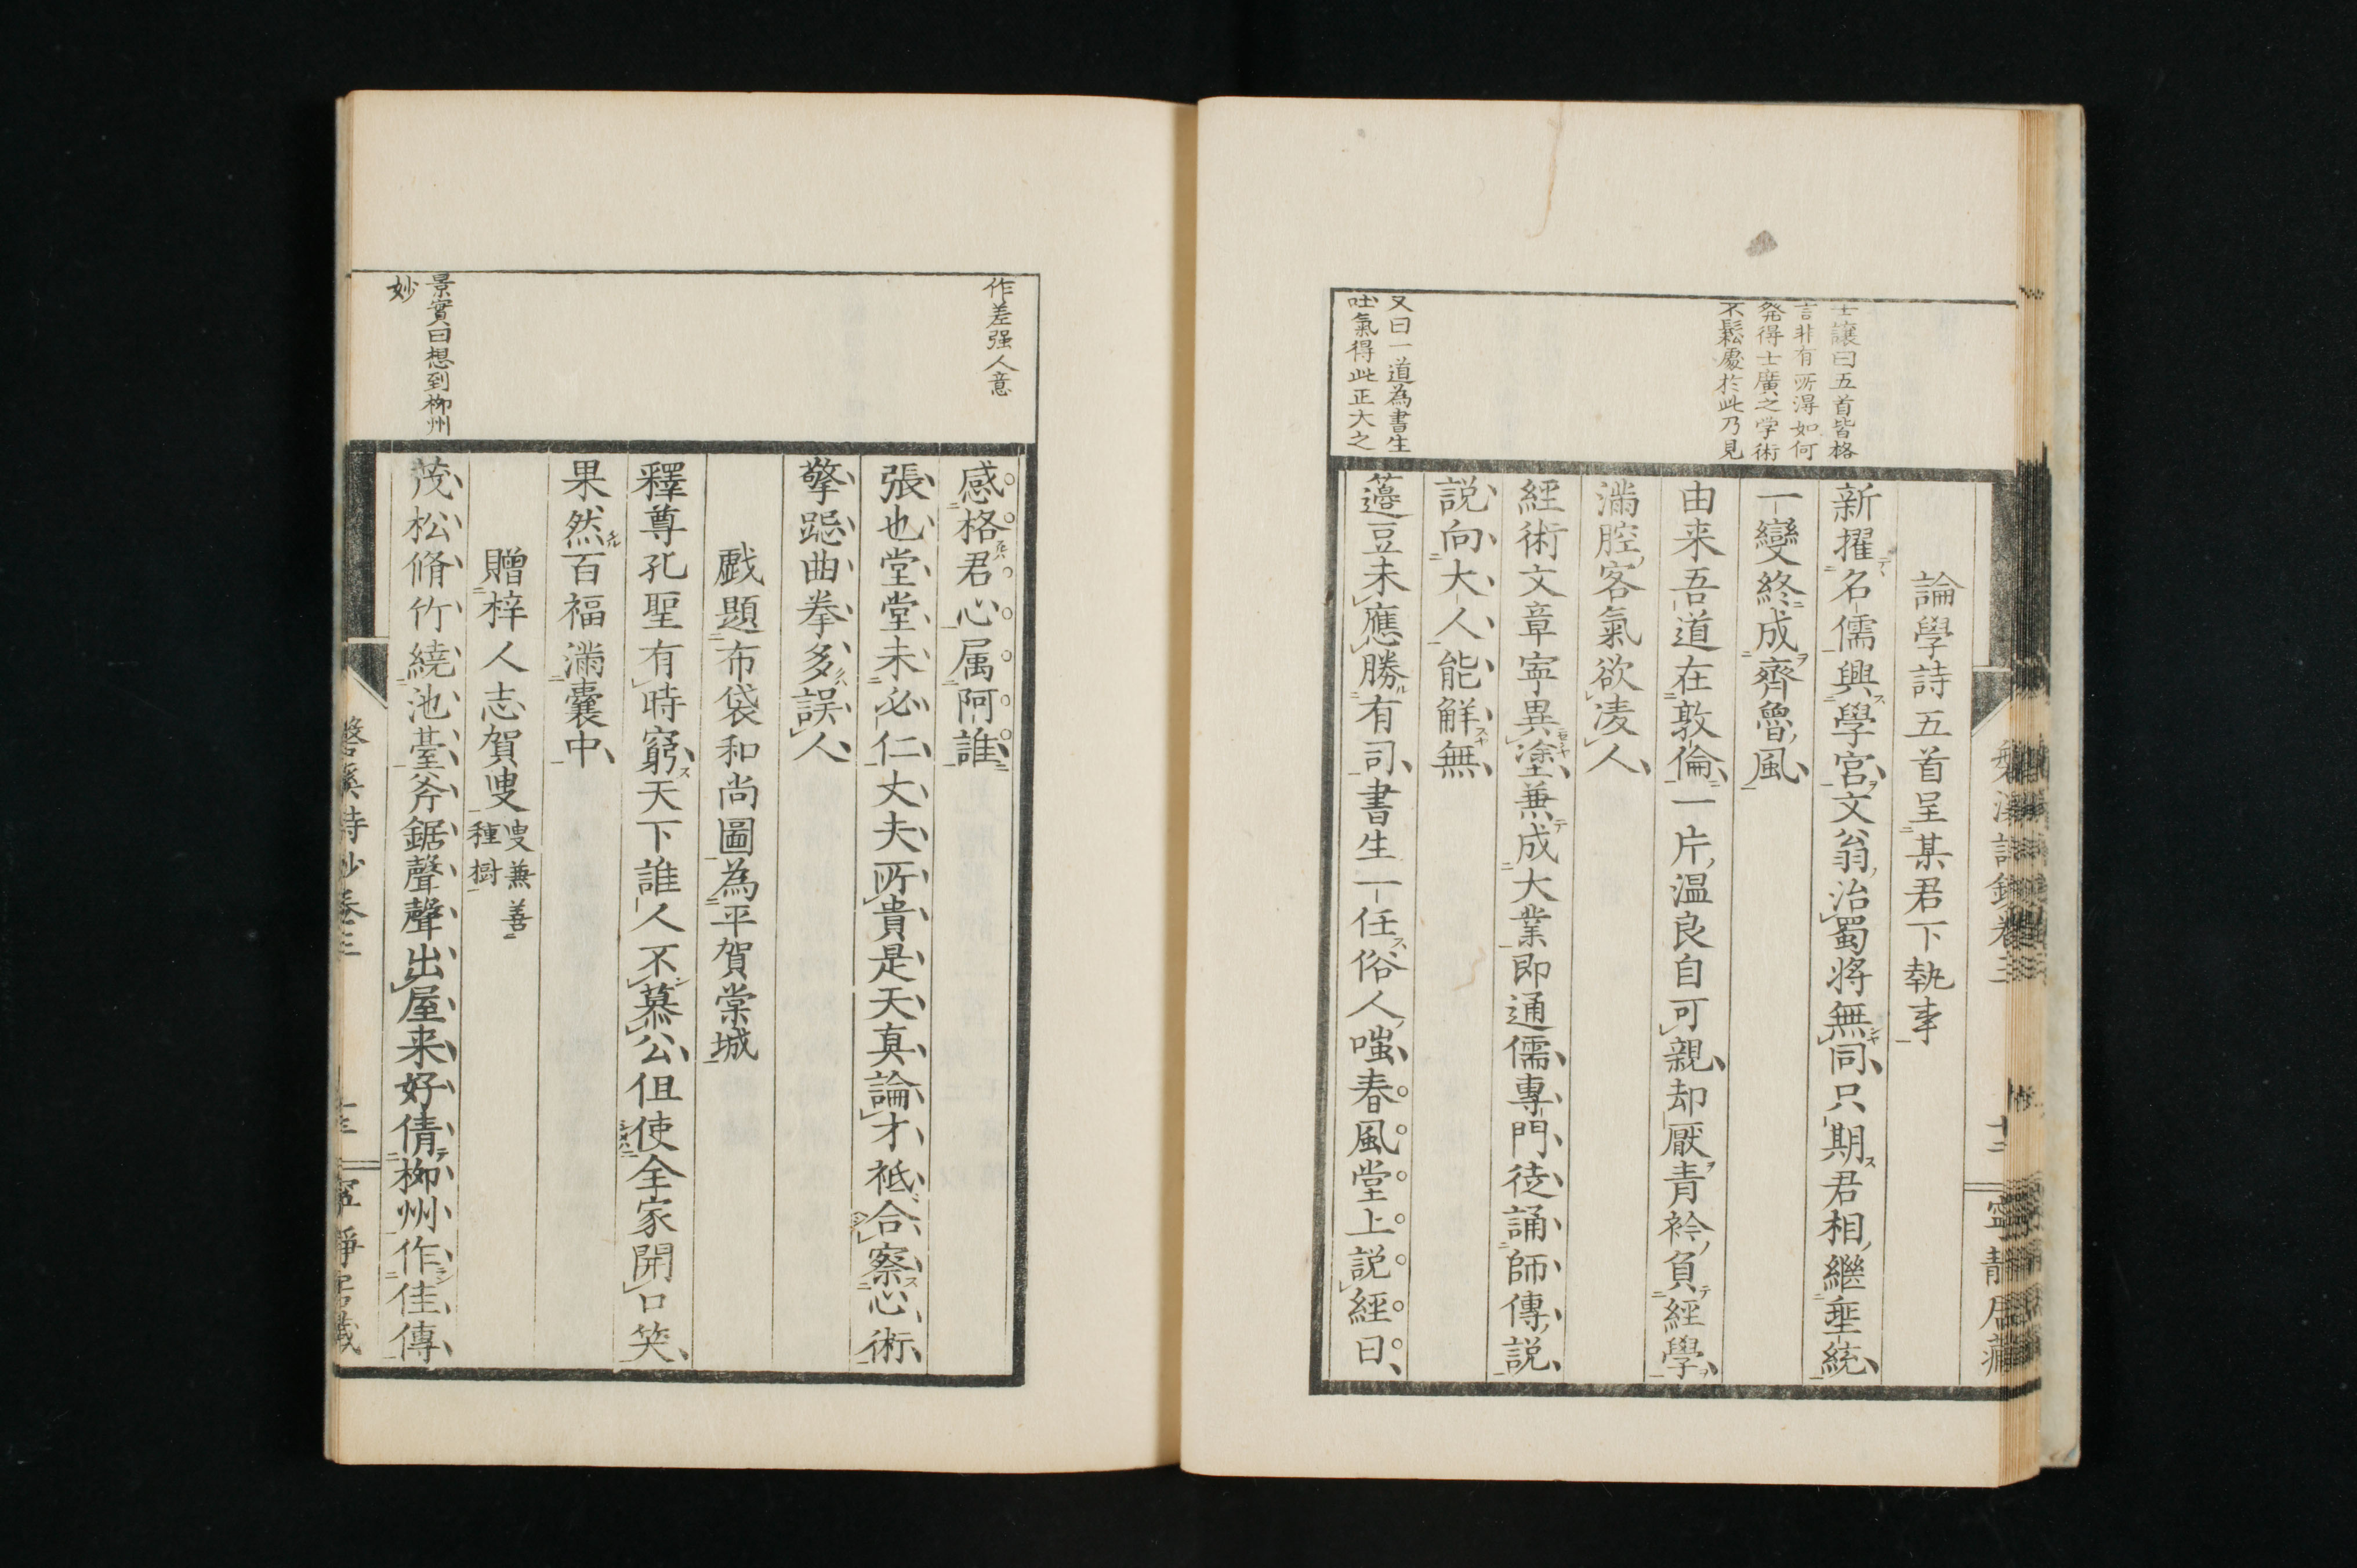 士譲曰五首皆格
言非有所得如何
発得士廣之学術
不鬆處於此乃見
又曰一道為書生
吐氣得此正大之
論學詩五首呈某君下執事
新擢名儒興學宮文翁治蜀將無同只期君相繼垂統
一變終成齊魯風
由来吾道在敦倫一片温良自可親却厭青衿負經學
滿腔客氣欲凌人
經術文章寧異塗兼成大業即通儒專門徒誦師傳説
説向大人能解無
籩豆未應勝有司書生一任俗人嗤春風堂上説經日
作差强人意
景實曰想到柳州
妙
感格君心属阿誰
張也堂堂未必仁丈夫所貴是天真論才祗合察心術
擎跽曲拳多誤人
戲題布袋和尚圖為平賀棠城
釋尊孔聖有時窮天下誰人不慕公但使全家開口笑
果然百福滿囊中
贈梓人志賀叟
叟兼善
種樹
茂松脩竹繞池臺斧鋸聲聲出屋来好倩柳州作佳傳
磐溪詩鈔卷三
寧靜居藏